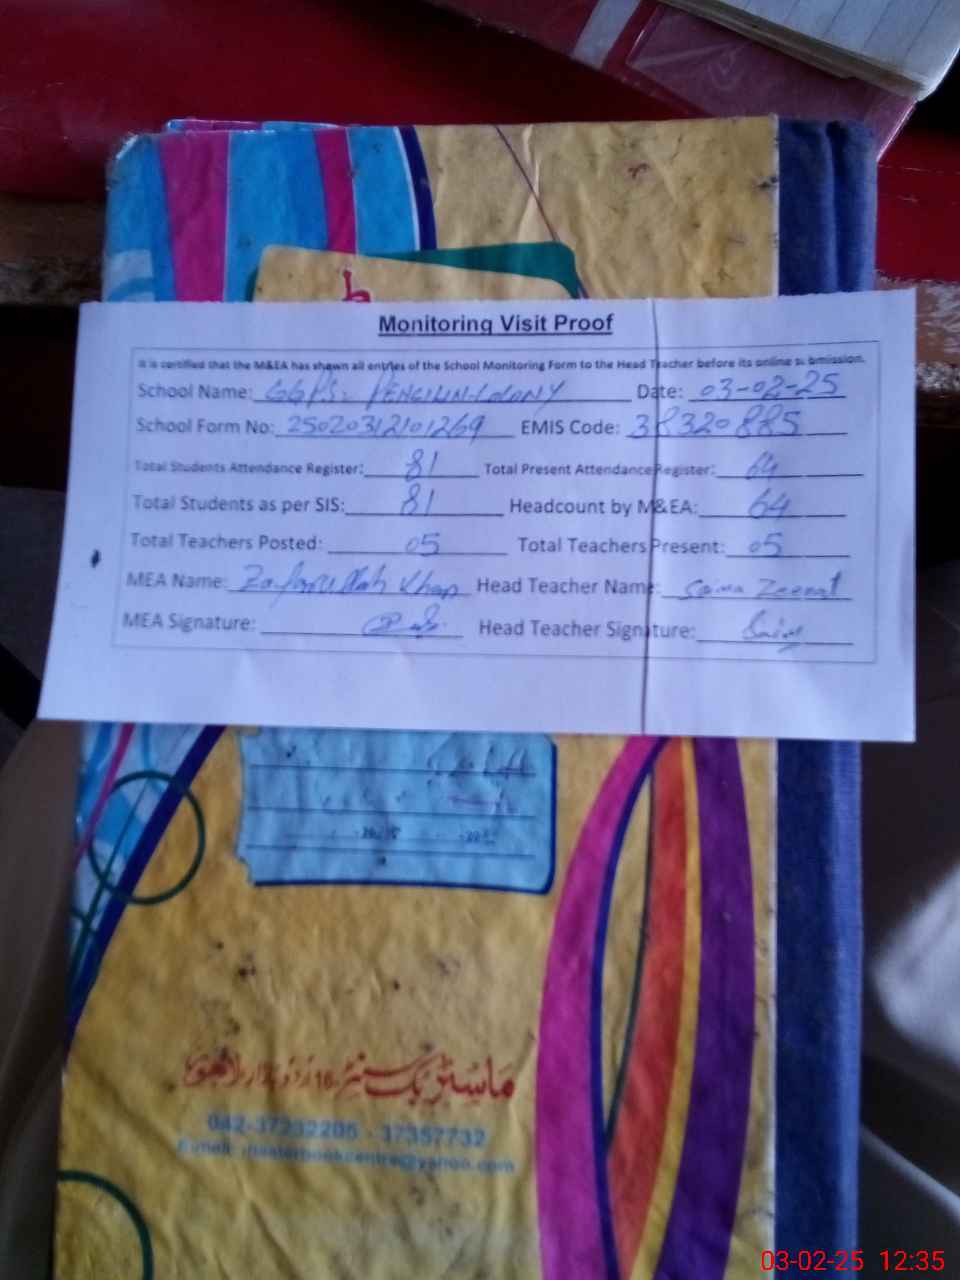 Monitoring Visit Proof
It is certified that the M&EA has shown all entries of the School Monitoring Form to the Head Teacher before its online submission.
School Name: GGPS. PENCILIN-COLONY Date: 03-02-25
School Form No: 25020312101269 EMIS Code: 38320885
Total Students Attendance Register: 81 Total Present Attendance Register: 64
Total Students as per SIS: 81 Headcount by M&EA: 64
Total Teachers Posted: 05 Total Teachers Present: 05
MEA Name: Zafarullah Khan Head Teacher Name: Saima Zeenat
MEA Signature: Head Teacher Signature:
ماسٹر بک سنٹر 16 اردو بازار لاہور
042-37232205 - 37357732
E.mail: masterbookcentre@yahoo.com
03-02-25 12:35